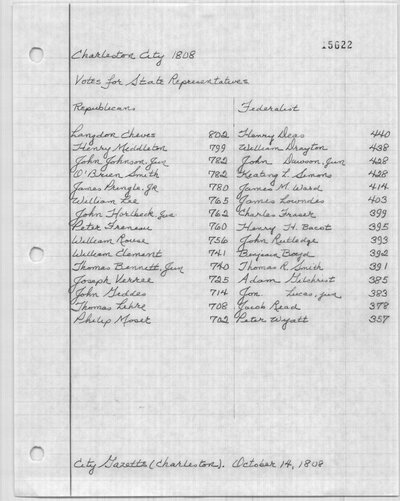 15622
Charleston City 1808
Votes for State Representatives
Republicans Federalist
Langdon Cheves 802 Henry Deas 440
Henry Meddleton 799 William Drayton 438
John Johnson, Jun 782 John Dawson, Jun 428
O'Brien Smith 782 Keating L. Simons 428
James Pringle, JR 780 James M. Ward 414
William Lee 765 James Lowndes 403
John Horlbeck, Jun 762 Charles Fraser 399
Peter Freneau 760 Henry H. Bacot 395
William Rouse 756 John Rutledge 393
William Clement 741 Benjamin Boyd 392
Thomas Bennett, Jun 740 Thomas R. Smith 391
Joseph Verree 725 Adam Gilchrist 385
John Geddes 714 Jon. Lucas, Jun 383
Thomas Lehre 708 Jacob Read 378
Philip Moser 702 Peter Wyatt 357
City Gazette (Charleston). October 14, 1808